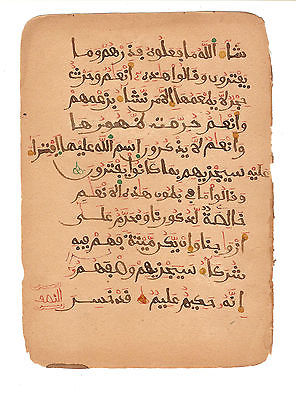 شاء الله ما فعلوه فذرهم وما
يفترون وقالوا هذه انعم وحرث
حجر لا يطعمها الا من نشاء بزعمهم
وانعم حرمت ظهورها
وانعم لا يذكرون اسم الله عليها افتراء
عليه سيجزيهم بما كانوا يفترون
وقالوا ما في بطون هذه الانعم
خالصة لذكورنا ومحرم على
ازواجنا وان يكن ميتة فهم فيه
شركاء سيجزيهم وصفهم
انه حكيم عليم قد خسر